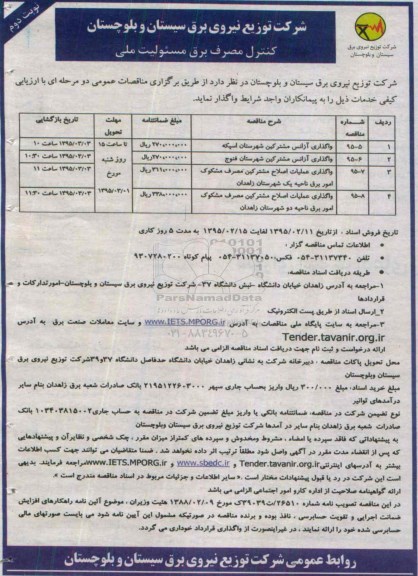 نوبت دوم
شرکت توزیع نیروی برق سیستان و بلوچستان
کنترل مصرف برق مسئولیت ملی
شرکت توزیع نیروی برق
سیستان و بلوچستان
شرکت توزیع نیروی برق سیستان و بلوچستان در نظر دارد از طریق برگزاری مناقصات عمومی دو مرحله ای با ارزیابی
کیفی خدمات ذیل را به پیمانکاران واجد شرایط واگذار نماید.
ردیف شماره مناقصه شرح مناقصه مبلغ ضمانتنامه مهلت تحویل تاریخ بازگشایی
۱ ۹۵-۵ واگذاری آژانس مشترکین شهرستان اسپکه ۲۷۰،۰۰۰،۰۰۰ ریال تا ساعت ۱۵ ۱۳۹۵/۰۳/۰۳ ساعت ۱۰
۲ ۹۵-۶ واگذاری آژانس مشترکین شهرستان فنوج ۲۷۰،۰۰۰،۰۰۰ ریال روز شنبه ۱۳۹۵/۰۳/۰۳ ساعت ۱۰:۳۰
۳ ۹۵-۷ واگذاری عملیات اصلاح مشترکین مصرف مشکوک ۳۱۱،۰۰۰،۰۰۰ ریال مورخ ۱۳۹۵/۰۳/۰۳ ساعت ۱۱
امور برق ناحیه یک شهرستان زاهدان
۴ ۹۵-۸ واگذاری عملیات اصلاح مشترکین مصرف مشکوک ۳۳۸،۰۰۰،۰۰۰ ریال ۱۳۹۵/۰۳/۰۱ ۱۳۹۵/۰۳/۰۳ ساعت ۱۱:۳۰
امور برق ناحیه دو شهرستان زاهدان
تاریخ فروش اسناد : از تاریخ ۱۳۹۵/۰۲/۱۱ لغایت ۱۳۹۵/۰۲/۱۵ به مدت ۵ روز کاری
• اطلاعات تماس مناقصه گزار :
• تلفن ۳۱۱۳۷۳۴۰-۰۵۴ فکس:۳۱۱۳۷۰۵۰-۰۵۴ پیام کوتاه ۹۳۰۷۲۸۰۲۰۰
• طریقه دریافت اسناد مناقصه:
۱-مراجعه به آدرس زاهدان خیابان دانشگاه -نبش دانشگاه ۳۷- شرکت توزیع نیروی برق سیستان و بلوچستان-امور تدارکات و
قراردادها
۲_ارسال اسناد از طریق پست الکترونیک
۳-مراجعه به سایت پایگاه ملی مناقصات به آدرس www.IETS.MPORG.ir و سایت معاملات صنعت برق به آدرس
Tender.tavanir.org.ir
ارائه درخواست و ثبت نام جهت دریافت اسناد مناقصه الزامی می باشد
محل تحویل پاکات مناقصه : دبیرخانه شرکت به نشانی زاهدان خیابان دانشگاه حدفاصل دانشگاه ۳۷و۳۹ شرکت توزیع نیروی برق
سیستان وبلوچستان
مبلغ خرید اسناد: مبلغ ۳۰۰/۰۰۰ ریال واریز بحساب جاری سپهر ۲۱۹۵۱۲۲۶۰۳۰۰۰ بانک صادرات شعبه برق زاهدان بنام سایر
درآمدهای توانیر
نوع تضمین شرکت در مناقصه: ضمانتنامه بانکی یا واریز مبلغ تضمین شرکت در مناقصه به حساب جاری ۱۰۳۴۰۳۸۱۵۰۰۲ بانک
صادرات شعبه برق زاهدان بنام سایر در آمدها شرکت توزیع نیروی برق سیستان وبلوچستان
به پیشنهاداتی که فاقد سپرده یا امضاء ، مشروط ومخدوش و سپرده های کمتراز میزان مقرر ، چک شخصی و نظایرآن و پیشنهادهایی
که پس از انقضاء مدت مقرر در آگهی واصل شود مطلقاً ترتیب اثر داده نخواهد شد . ضمنا متقاضیان می توانند جهت کسب اطلاعات
بیشتر به آدرسهای اینترنتی Tender.tavanir.org.ir و www.sbedc.ir و www.IETS.MPORG.ir مراجعه فرمایند. بدیهی
است این شرکت در رد یا قبول پیشنهادات مختار است .« سایر اطلاعات و جزئیات مربوط در اسناد مناقصه مندرج است ».
ارائه گواهینامه صلاحیت از اداره کارو امور اجتماعی الزامی می باشد
در این مناقصه تصویب نامه شماره ۲۶۵۱۰/ت۳۹۰۳۹ک مورخ ۱۳۸۸/۰۲/۰۹ هئیت وزیران ، موضوع آئین نامه راهکارهای افزایش
ضمانت اجرایی و تقویت حسابرسی ، نافذ بوده و برنده مناقصه در صورتیکه مشمول این آیین نامه شود می بایست صورتهای مالی
حسابرسی شده خود را ارائه نمایند ، در غیراینصورت از واگذاری قرارداد خودداری می گردد.
روابط عمومی شرکت توزیع نیروی برق سیستان و بلوچستان
ParsNamadData
۰۲۱-۸۸۳۴۹۶۷۰-۵